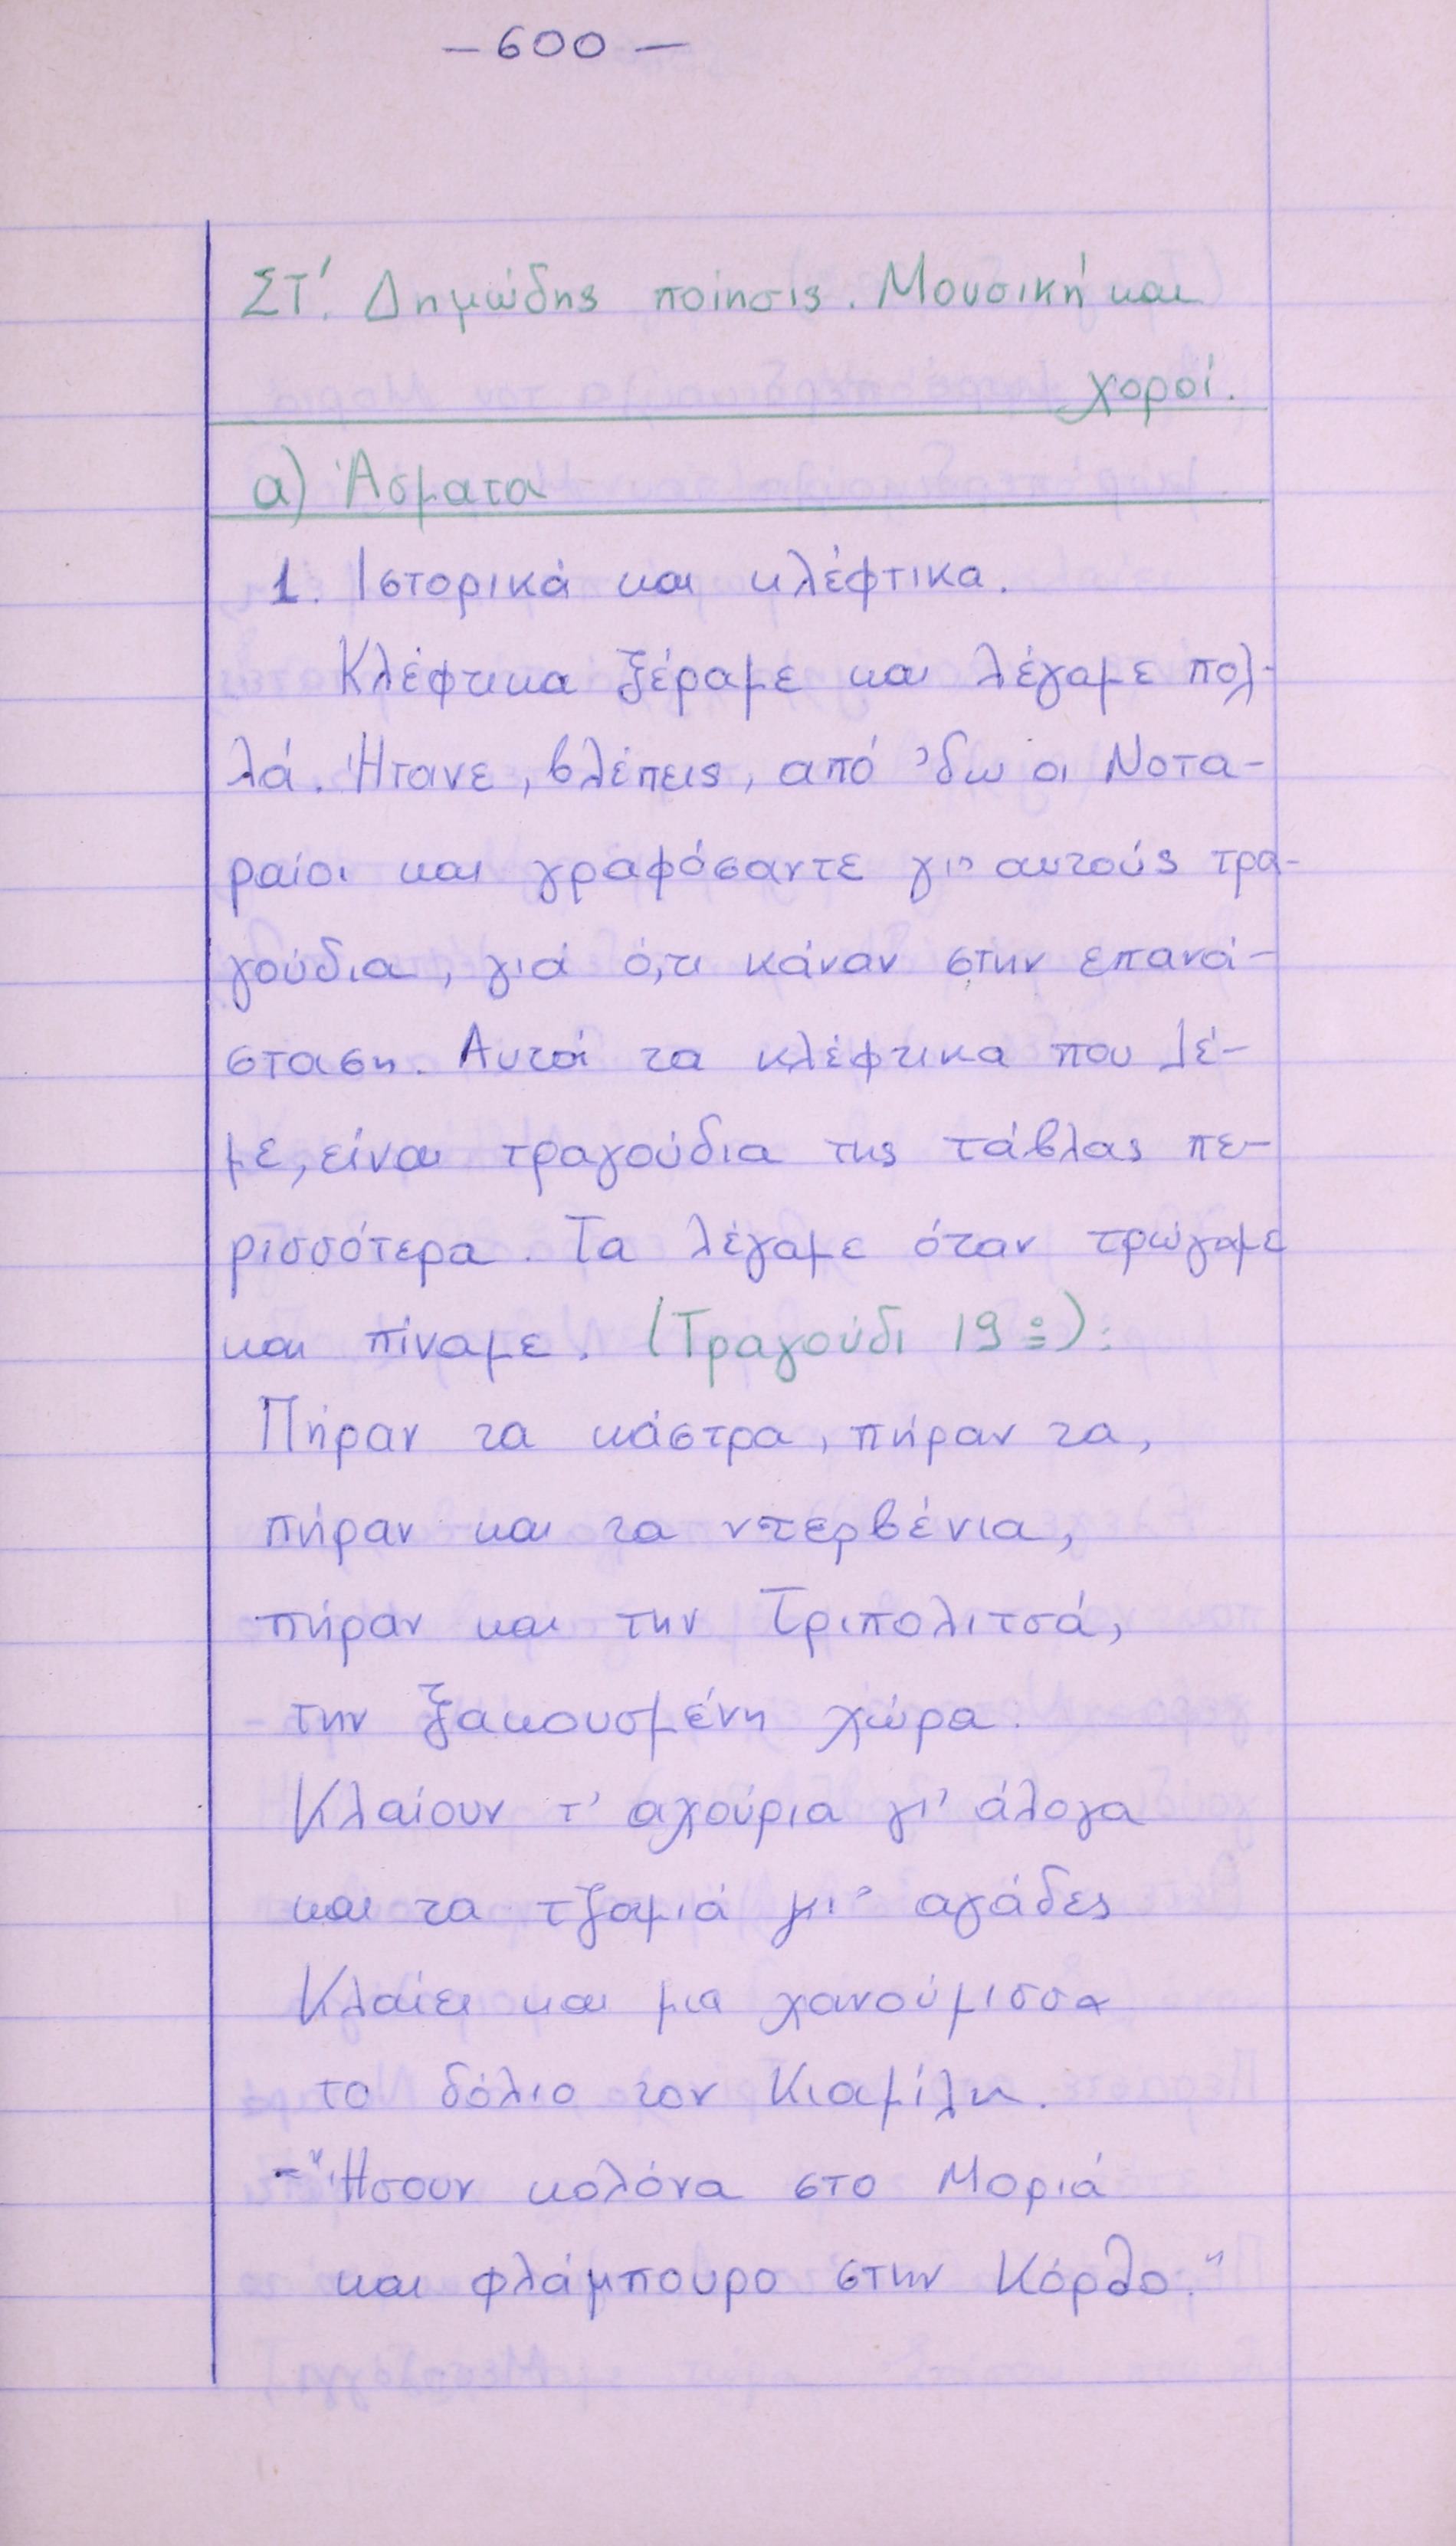 — 600 —
ΣΤ΄. Δημώδης ποίησις. Μουσική και
χοροί.
α) Άσματα
1. Ιστορικά και κλέφτικα.
Κλέφτικα ξέραμε και λέγαμε πολ-
λά. Ήτανε, βλέπεις, από 'δω οι Νοτα-
ραίοι και γραφόσαντε γι' αυτούς τρα-
γούδια, γιά ό,τι κάναν στην επανά-
σταση. Αυτά τα κλέφτικα που λέ-
με, είναι τραγούδια της τάβλας πε-
ρισσότερα. Τα λέγαμε όταν τρώγαμε
και πίναμε. (Τραγούδι 19ο):
Πήραν τα κάστρα, πήραν τα,
πήραν και τα ντερβένια,
πήραν και την Τριπολιτσά,
την ξακουσμένη χώρα.
Κλαίουν τ' αχούρια γι' άλογα
και τα τζαμιά γι' αγάδες
Κλαίει και μια χανούμισσα
το δόλιο τον Κιαμίλη.
-"Ήσουν κολόνα στο Μοριά
και φλάμπουρο στην Κόρθο."